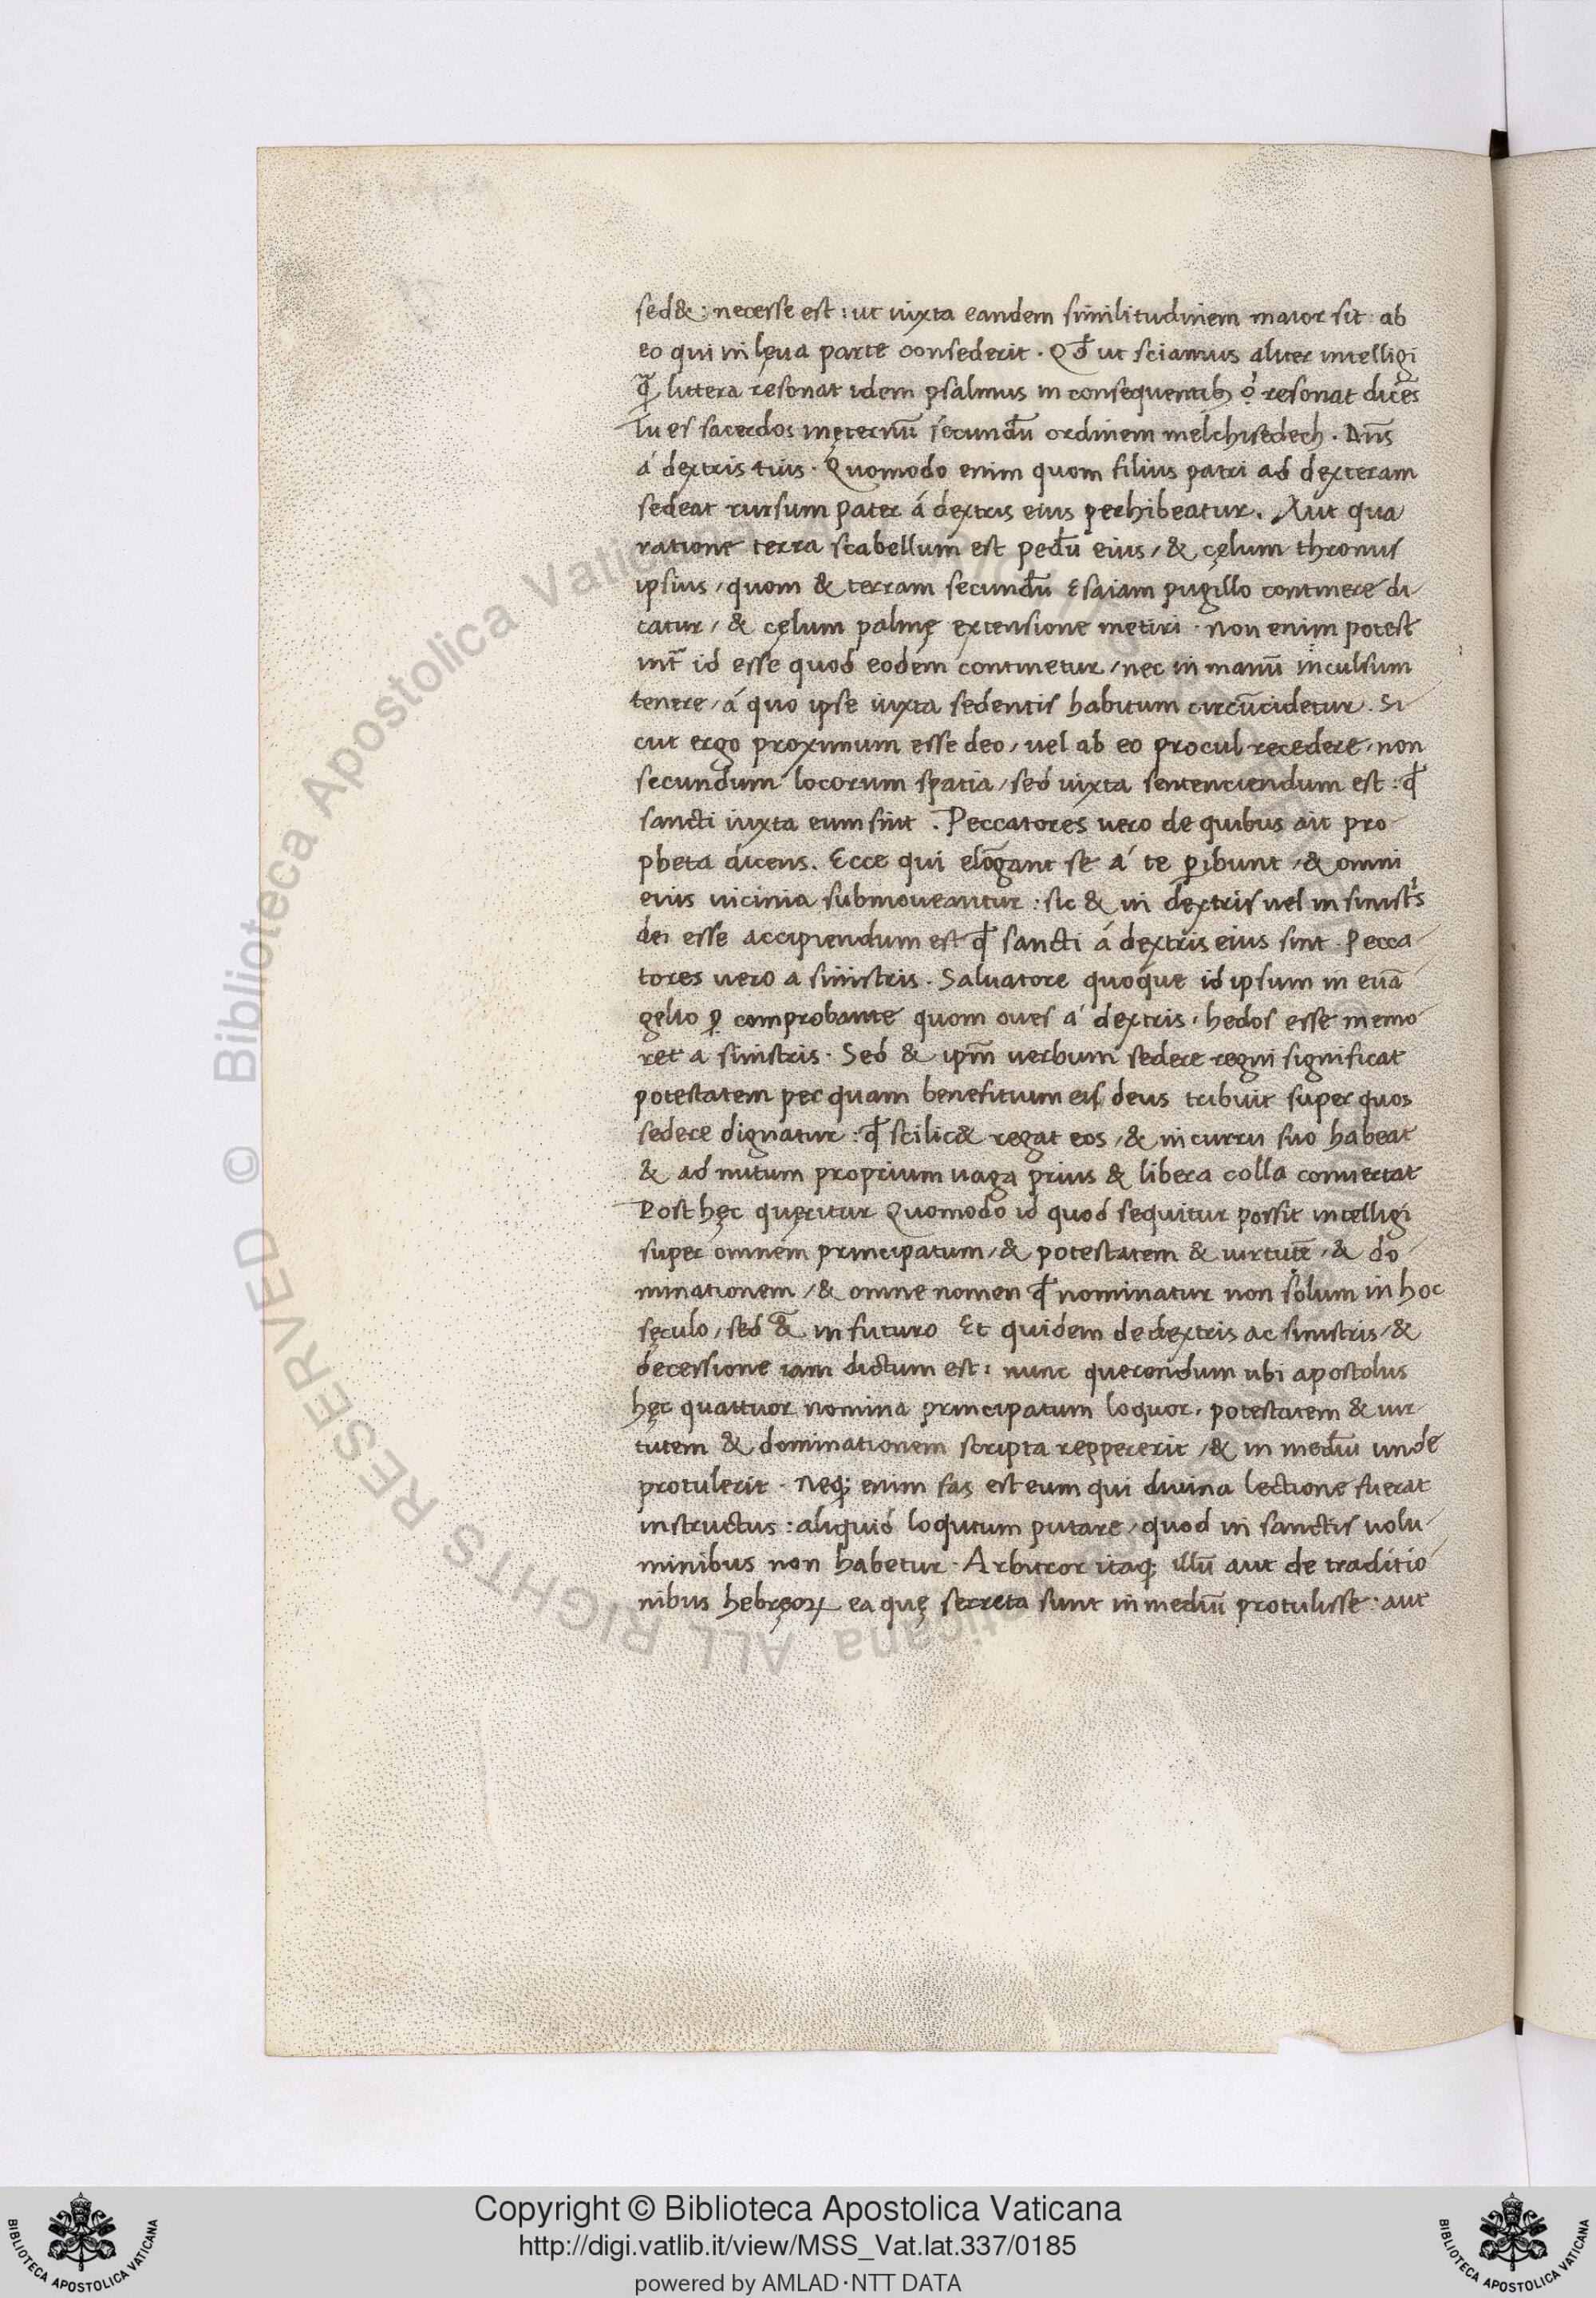 sed&: necesse est: ut iuxta eandem similitudinem maior sit: ab
eo qui in lęua parte consederit. Qđ ut sciamus aliter intelligi
q̃ littera resonat idem psalmus in consequentib; resonat dicẽs
Tu es sacerdos inęternũ secundũ ordinem melchisedech. Dñs
á dextris tuis. Quomodo enim quom filius patri ad dexteram
sedeat rursum pater á dextris eius perhibeatur. Aut qua
ratione terra scabellum est pedũ eius, & cęlum thronus
ipsius, quom & terram secundũ Esaiam pugillo continere di
catur, & cęlum palmę extensione metiri. non enim potest
int̃ id esse quod eodem continetur, nec in manũ inculsum
tenere, á quo ipse iuxta sedentis habitum circũcidetur. Si
cut ergo proximum esse deo, uel ab eo procul recedere, non
secundum locorum spatia, sed iuxta sentenciendum est: qđ
sancti iuxta eum sint. Peccatores uero de quibus ait pro
pheta dicens. Ecce qui elõgant se á te ꝑibunt, & omni
eius uicinia submoueantur: sic & in dextris uel in sinistis
dei esse accipiendum est qđ sancti á dextris eius sint. Pecca
tores uero a sinistris. Saluatore quoque id ipsum in euã
gelio comprobante quom oues á dextris, hedos esse memo
ret a sinistris. Sed & ipm̃ uerbum sedere regni significat
potestatem per quam benefitium eis deus tribuit super quos
sedere dignatur: qđ scilic& regat eos, & in curru suo habeat
& ad nutum proprium uaga prius & libera colla conuertat
Post hęc quęritur Quomodo id quod sequitur possit intelligi
super omnem principatum, & potestatem & uirtutẽ, & do
minationem, & omne nomen qđ nominatur non solum in hoc
sęculo, sed &̃ in futuro Et quidem de dextris ac sinistris, &
decessione iam dictum est: nunc querendum ubi apostolus
hęc quattuor nomina principatum loquor, potestatem & uir
tutem & dominationem scripta reppererit, & in mediũ unde
protulerit. neq; enim fas est eum qui diuina lectione fuerat
instructus: aliquid loqutum putare, quod in sanctis uolu
minibus non habetur. Arbitror itaq; illũ aut de traditio
nibus hebręoꝝ ea quę serreta sunt in mediũ protulisse: aut
© Biblioteca Apostolica Vaticana ALL RIGHTS RESERVED
Copyright © Biblioteca Apostolica Vaticana
http://digi.vatlib.it/view/MSS_Vat.lat.337/0185
powered by AMLAD·NTT DATA
BIBLIOTECA APOSTOLICA VATICANA
BIBLIOTECA APOSTOLICA VATICANA